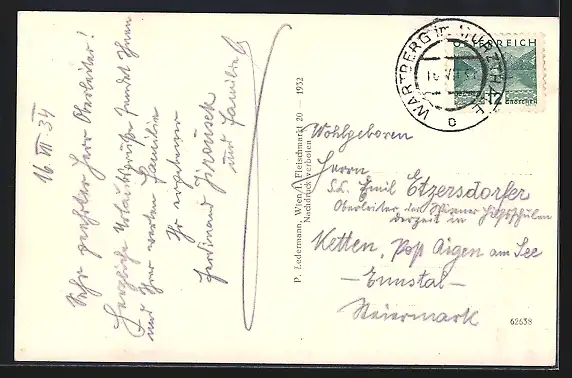 16. VII 34
Sehr geehrter Herr Oberleiter!
Herzliche Urlaubsgrüße sendet Ihnen
und Ihrer werten Familie
Ihr ergebener
Ferdinand
und Familie
P. Ledermann, Wien I., Fleischmarkt 20 — 1932
Nachdruck verboten
WARTBERG im MÜRZTALE
ÖSTERREICH
12 GROSCHEN
Wohlgeboren
Herrn
Emil Etzersdorfer
Oberleiter der Wiener Hilfsschulen
derzeit in
Ketten, Post Aigen am See
— Ennstal —
Steiermark
62638